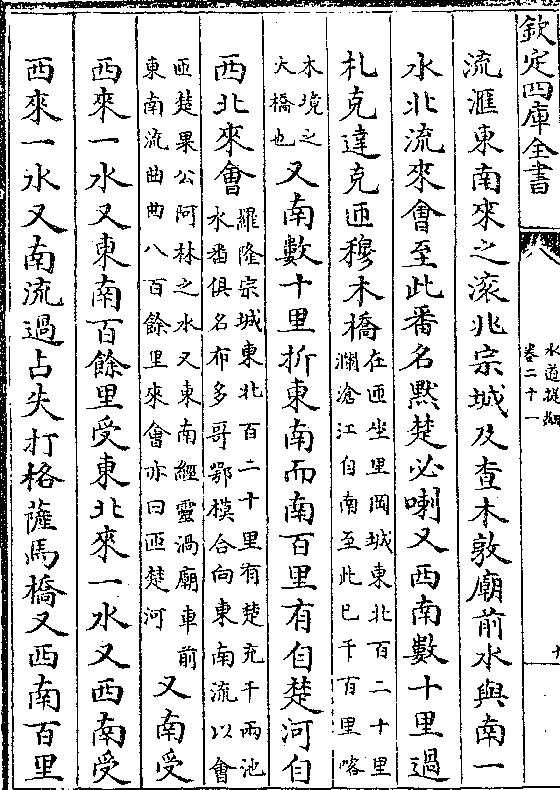 欽定四庫全書
水道提綱
卷二十一
流滙東南來之滚兆宗城及查木敦廟前水與南一
水北流來會至此番名黙楚必喇又西南數十里過
札克達克匝穆木橋
在匝坐里岡城東北百二十里
瀾滄江自南至此已千百里喀
木境之
大橋也
又南數十里折東南而南百里有自楚河自
西北來會
羅隆宗城東北百二十里有楚充千兩池
水番俱名布多哥鄂模合向東南流以會
匝楚果公阿林之水又東南經靈渦廟車前
東南流曲曲八百餘里來會亦曰匝楚河
又南受
西來一水又東南百餘里受東北來一水又西南受
西來一水又南流過占失打格薩馬橋又西南百里